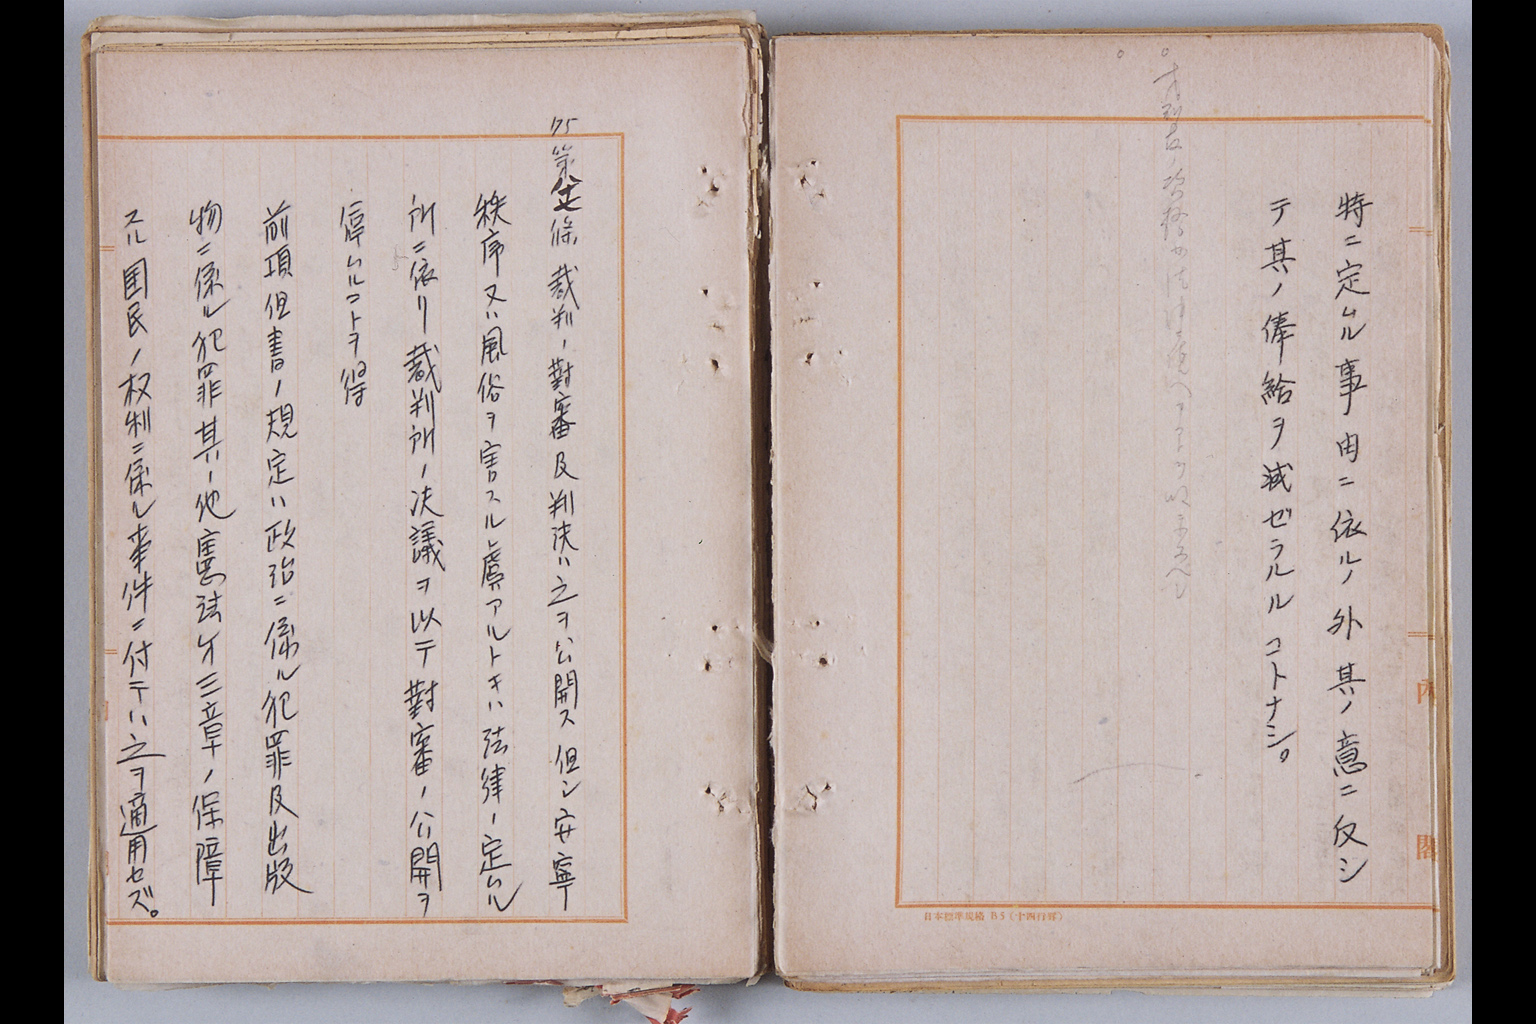 特ニ定ムル事由ニ依ルノ外其ノ意ニ反シ
テ其ノ俸給ヲ減ゼラルルコトナシ。
日本標準規格 B5(十四行罫)
内閣
75
第 條 裁判ノ對審及判決ハ之ヲ公開ス但シ安寧
秩序又ハ風俗ヲ害スル虞アルトキハ法律ノ定ムル
所ニ依リ裁判所ノ決議ヲ以テ對審ノ公開ヲ
停ムルコトヲ得
前項但書ノ規定ハ政治ニ係ル犯罪及出版
物ニ係ル犯罪其ノ他憲法才三章ノ保障
スル国民ノ权利ニ係ル事件ニ付テハ之ヲ適用セズ。